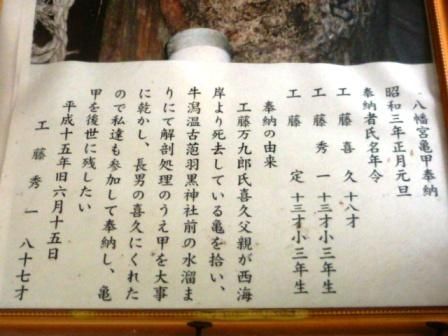 八幡宮亀甲奉納
昭和三年正月元旦
奉納者氏名年令
工藤喜久十八才
工藤秀一十三才小三年生
工藤定十三才小三年生
奉納の由来
工藤万九郎氏喜久父親が西海
岸より死去している亀を拾い、
牛潟温古范羽黒神社前の水溜ま
りにて解剖処理のうえ甲を大事
に乾かし、長男の喜久にくれた
ので私達も参加して奉納し、亀
甲を後世に残したい
平成十五年旧六月十五日
工藤秀一 八十七才